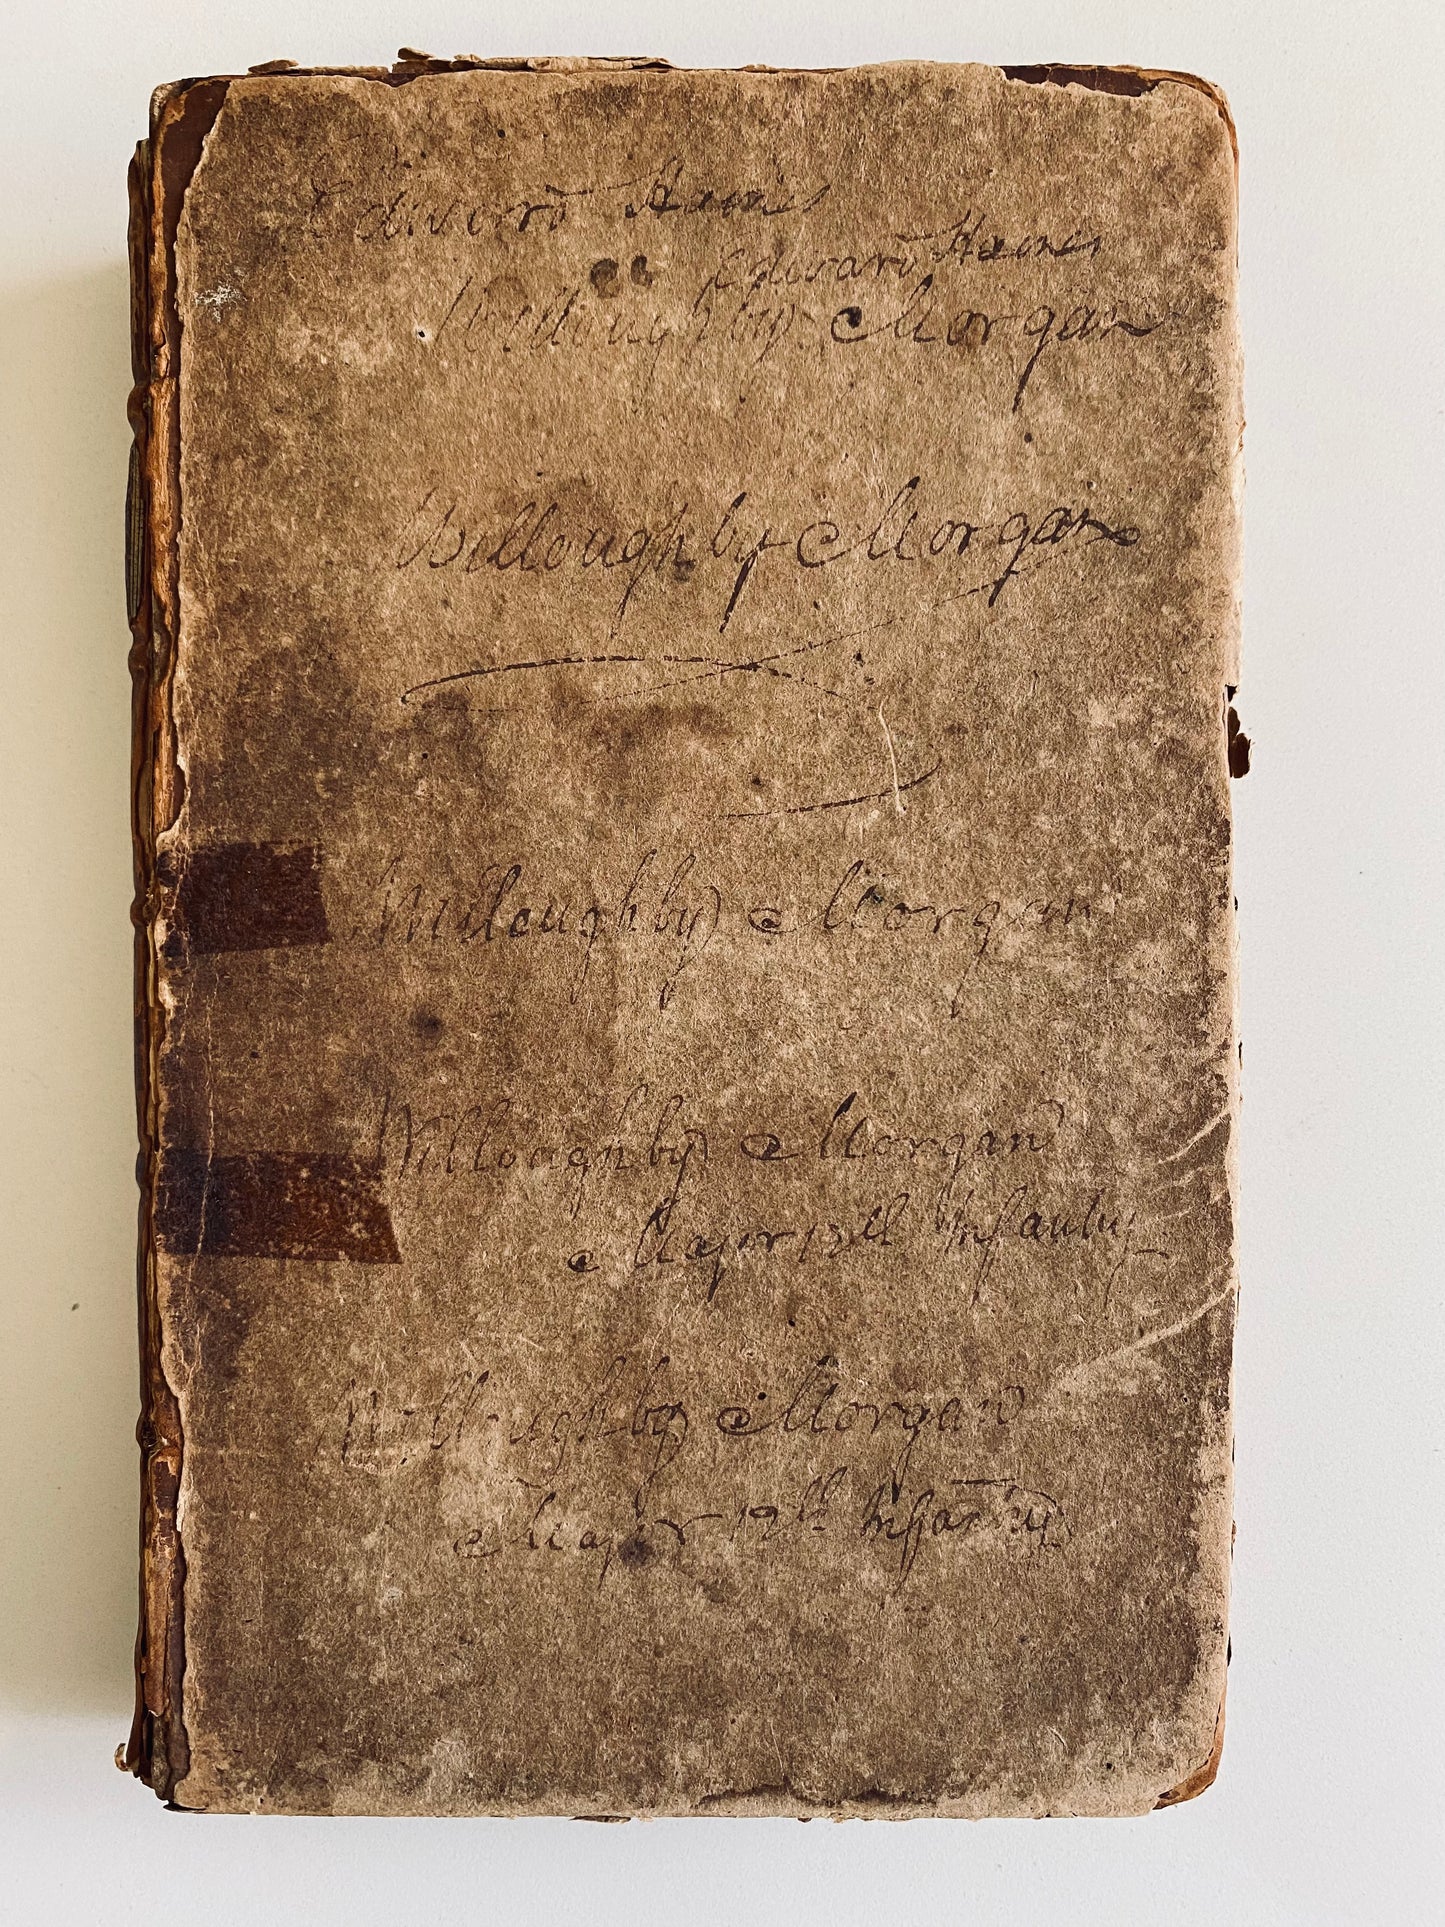 Edward Haines
Edward Haines
Willoughby Morgan
Willoughby Morgan
Willoughby Morgan
Willoughby Morgan
Major 12th Infantry
Willoughby Morgan
Major 12th Infantry